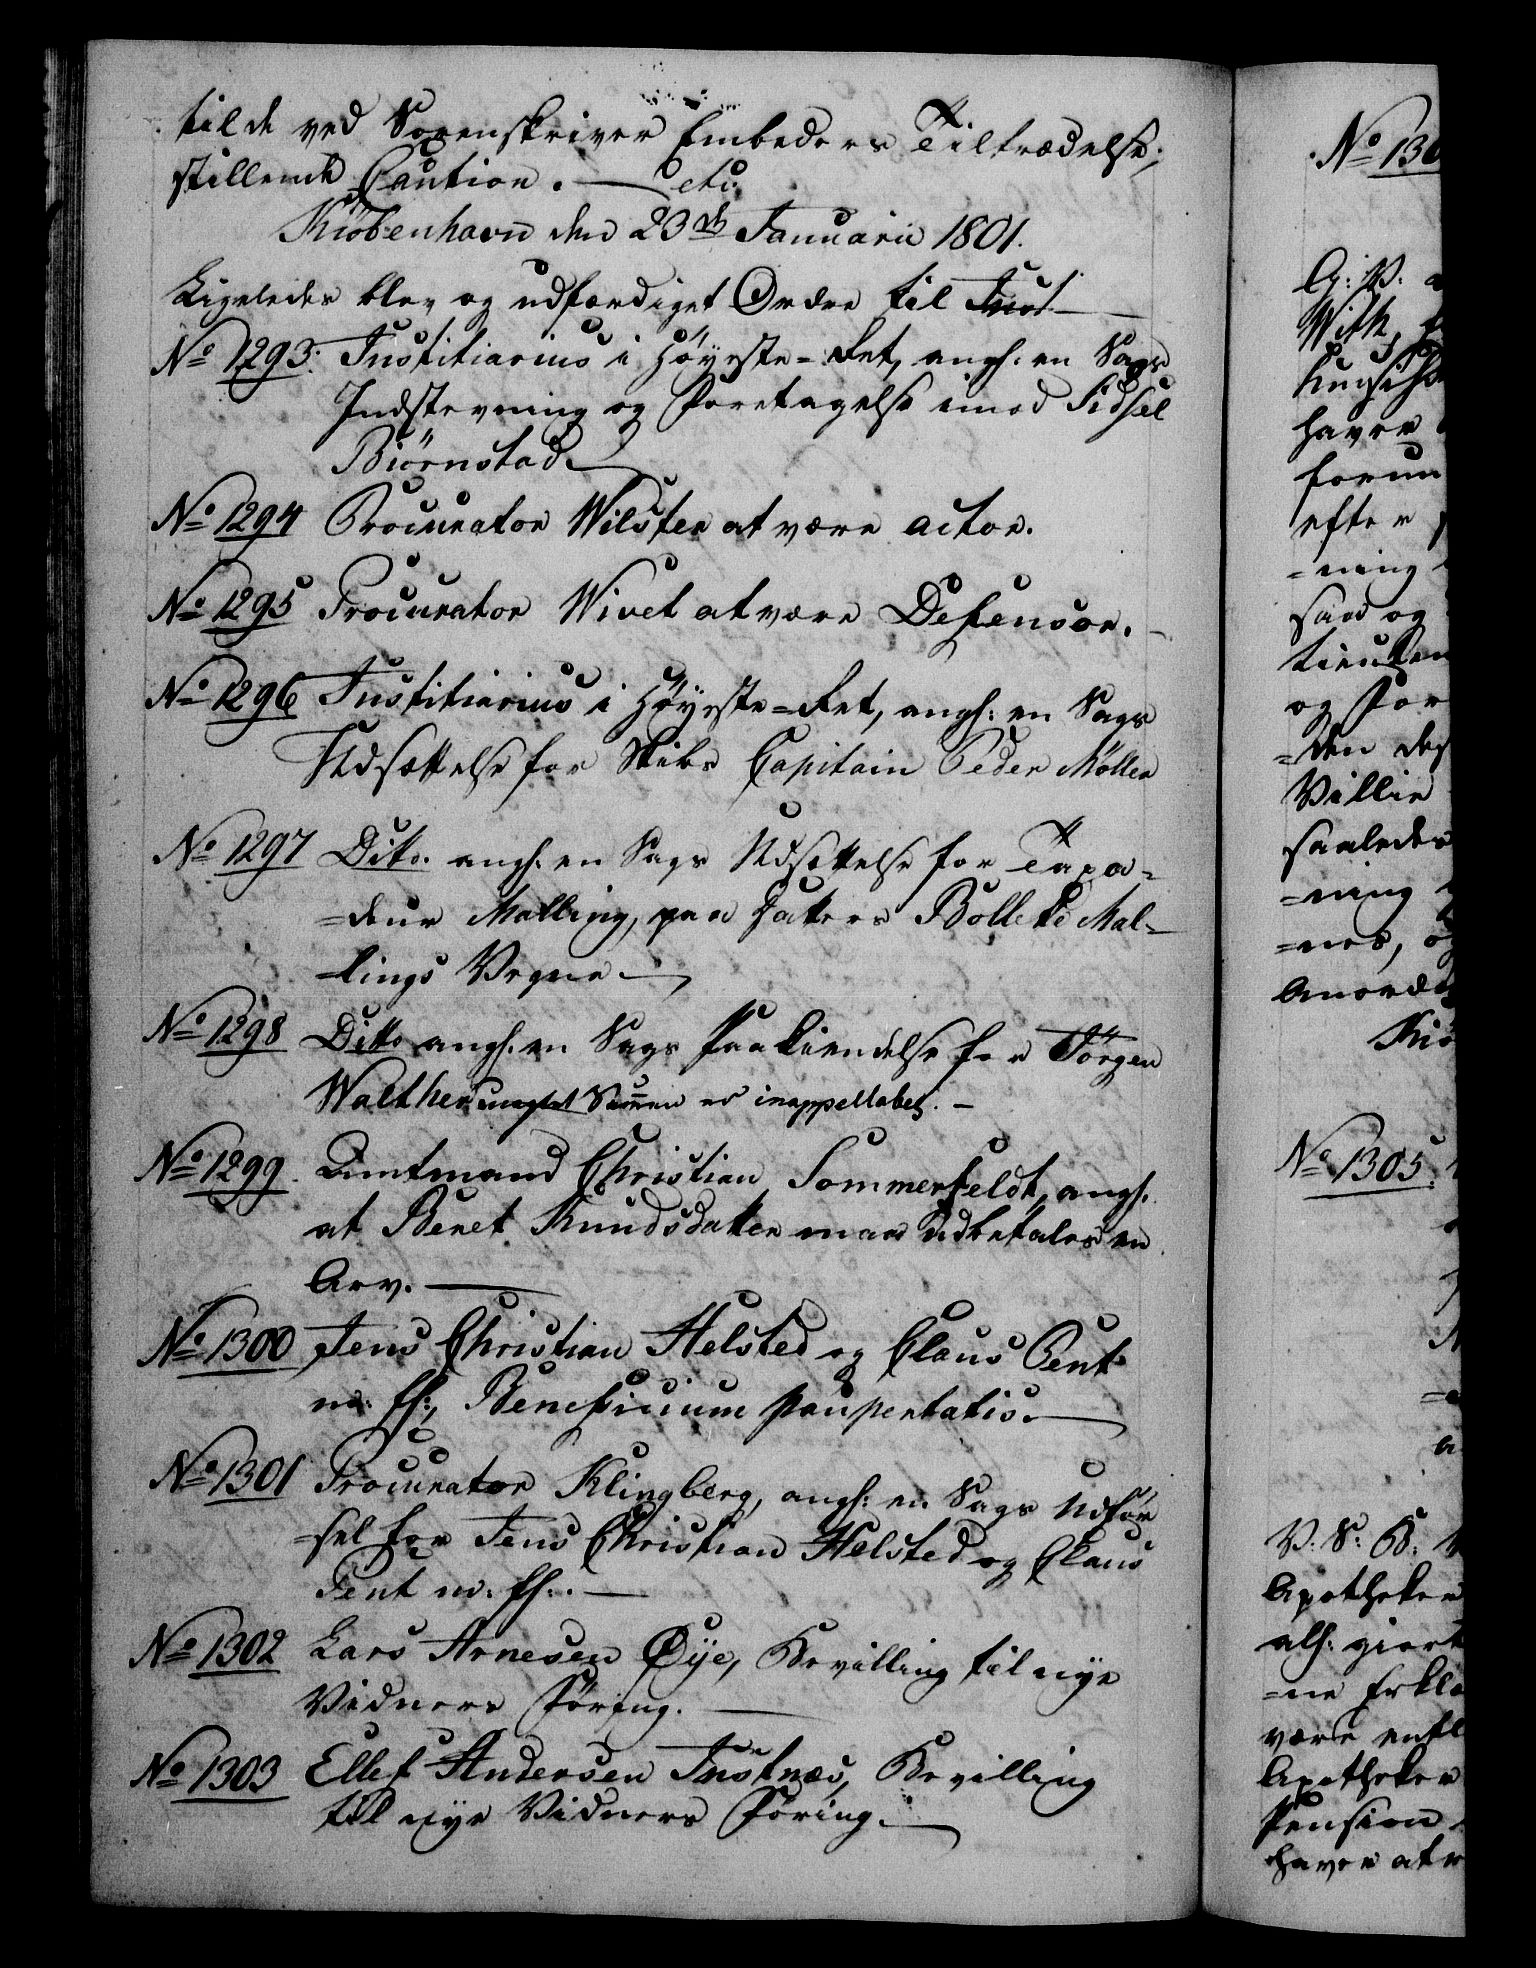 til de ved Sorenskriver Embeders Tiltrædelse,
stillende Caution. — etc.
Kiöbenhavn den 23de Januarii 1801.
Ligeledes blev og udfærdiget Ordre til Just:
No 1293: Justitiarius i Höyeste-Ret, angl: en Sags
Indstevning og Foretagelse imod Sidsel
Biörnstad.
No 1294 Procurator Wilster at være actor.
No 1295 Procurator Wivet at være Defensor.
No 1296 Justitiarius i Höyeste-Ret, angl: en Sags
Udsættelse for Skibs Capitain Peder Möller
No 1297 Dito. angl: en Sags Udsættelse for Taxa-
=deur Malling, paa Enkens Bollette Mal-
-lings Vegne.
No 1298 Ditto angl: en Sags Paakiendelse for Jörgen
Walther uagtet Summen er inappellabel. -
No 1299. Amtmand Christian Sommerfeldt, angl.
at Beret Knudsdatter maa udbetales en
Arv.
No 1300 Jens Christian Helsted og Claus Pent
m: fl:, Beneficium paupertatis.
No 1301 Procurator Klingberg, angl: en Sags Udför
=sel for Jens Christian Helsted og Claus
Pent m: fl:.
No 1302 Lars Arnesen Øye, Bevilling til nye
Vidners Föring.
No 1303 Ellef Andersen Justnæs, Bevilling
til nye Vidners Föring.
No 130
G: V:
With,
haver
forun
efter
=ning
saa og
og For
=den
Villie
saaledes
=ning
=nes, o
Anord
Kiö
No 1305:
V: S: G:
Apotheker
alh: giort
=ne Erklæ
være entl
Apotheker
Pension
haver at